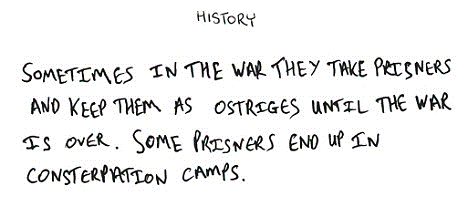 HISTORY
SOMETIMES IN THE WAR THEY TAKE PRISNERS
AND KEEP THEM AS OSTRIGES UNTIL THE WAR
IS OVER. SOME PRISNERS END UP IN
CONSTERPATION CAMPS.